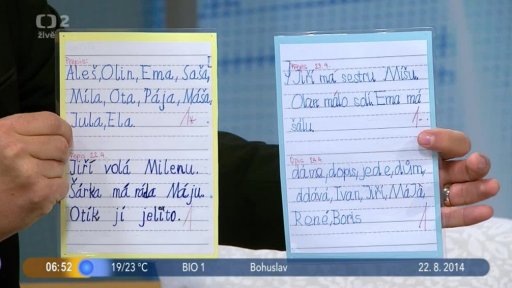 2
živě
Přepis
Aleš, Olin, Ema, Saša,
Míla, Ota, Pája, Máša,
Jula, Ela.
1-
Kopis 22.4.
Jiří volá Milenu.
Šárka má ráda Máju.
Otík jí jelito.
1
Přepis 23.4.
Jiří má sestru Míšu.
málo solí. Ema má
šálu.
1-
Opis 24.4.
dáma, dopis, jede, dům,
dává, Ivan, Jiří, Máša,
René, Boris
1
06:52 19/23 °C BIO 1 Bohuslav 22. 8. 2014